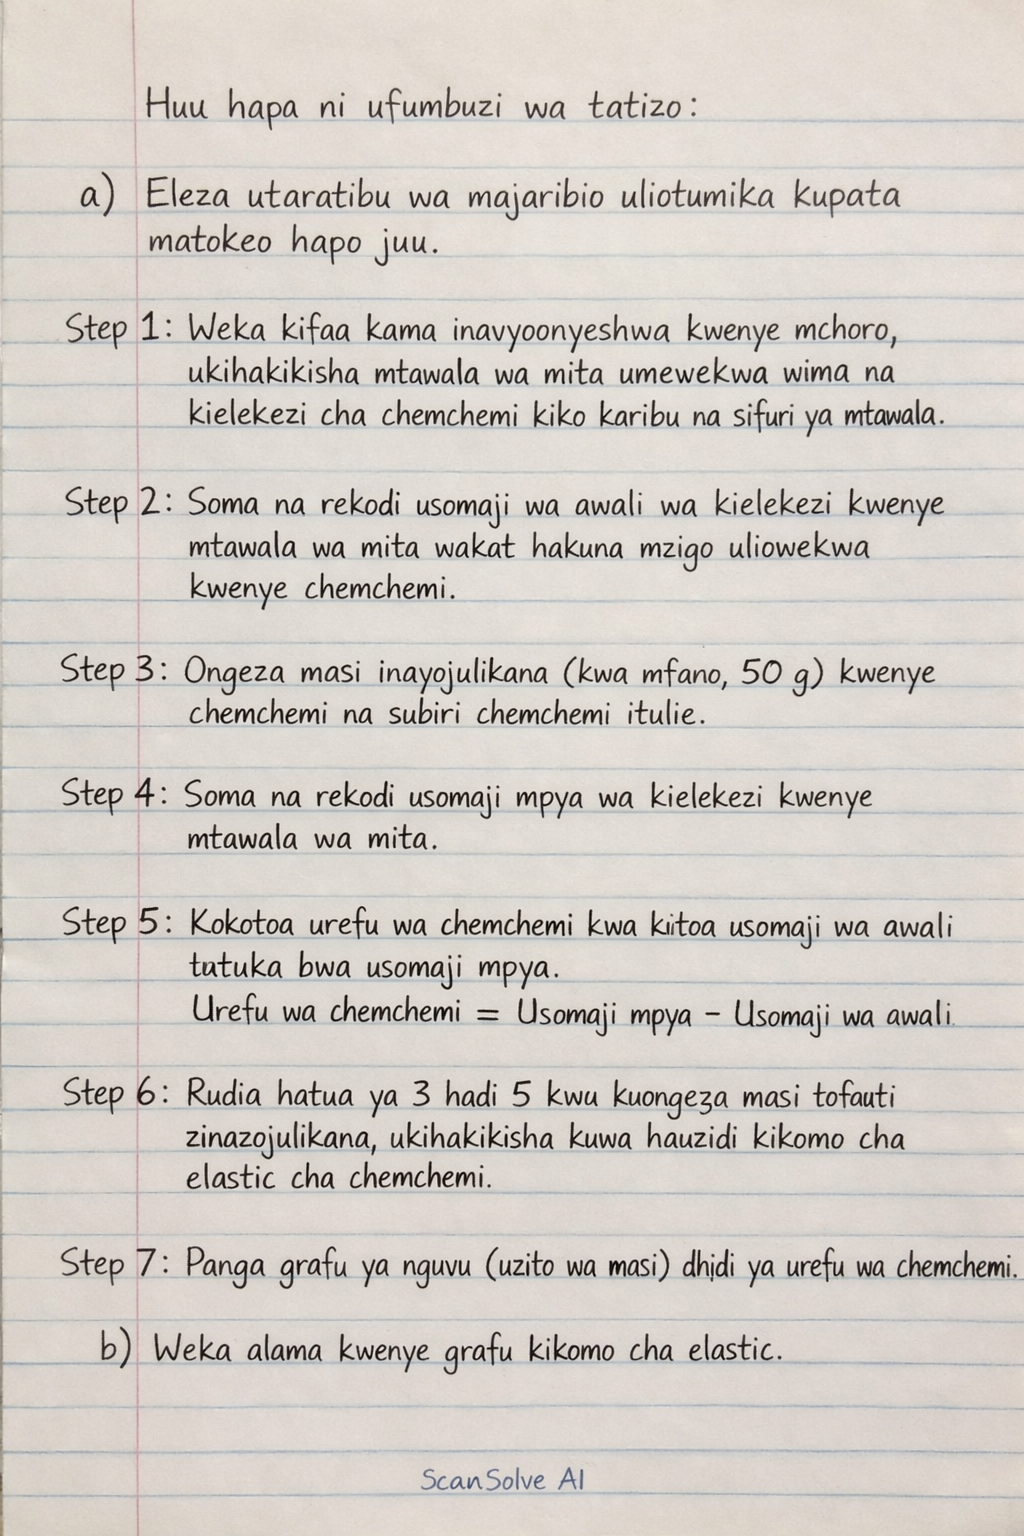 Huu hapa ni ufumbuzi wa tatizo:
a) Eleza utaratibu wa majaribio uliotumika kupata
matokeo hapo juu.
Step 1: Weka kifaa kama inavyoonyeshwa kwenye mchoro,
ukihakikisha mtawala wa mita umewekwa wima na
kielekezi cha chemchemi kiko karibu na sifuri ya mtawala.
Step 2: Soma na rekodi usomaji wa awali wa kielekezi kwenye
mtawala wa mita wakat hakuna mzigo uliowekwa
kwenye chemchemi.
Step 3: Ongeza masi inayojulikana (kwa mfano, 50 g) kwenye
chemchemi na subiri chemchemi itulie.
Step 4: Soma na rekodi usomaji mpya wa kielekezi kwenye
mtawala wa mita.
Step 5: Kokotoa urefu wa chemchemi kwa kitoa usomaji wa awali
tatuka bwa usomaji mpya.
Urefu wa chemchemi = Usomaji mpya - Usomaji wa awali.
Step 6: Rudia hatua ya 3 hadi 5 kwu kuongeza masi tofauti
zinazojulikana, ukihakikisha kuwa hauzidi kikomo cha
elastic cha chemchemi.
Step 7: Panga grafu ya nguvu (uzito wa masi) dhidi ya urefu wa chemchemi.
b) Weka alama kwenye grafu kikomo cha elastic.
ScanSolve AI